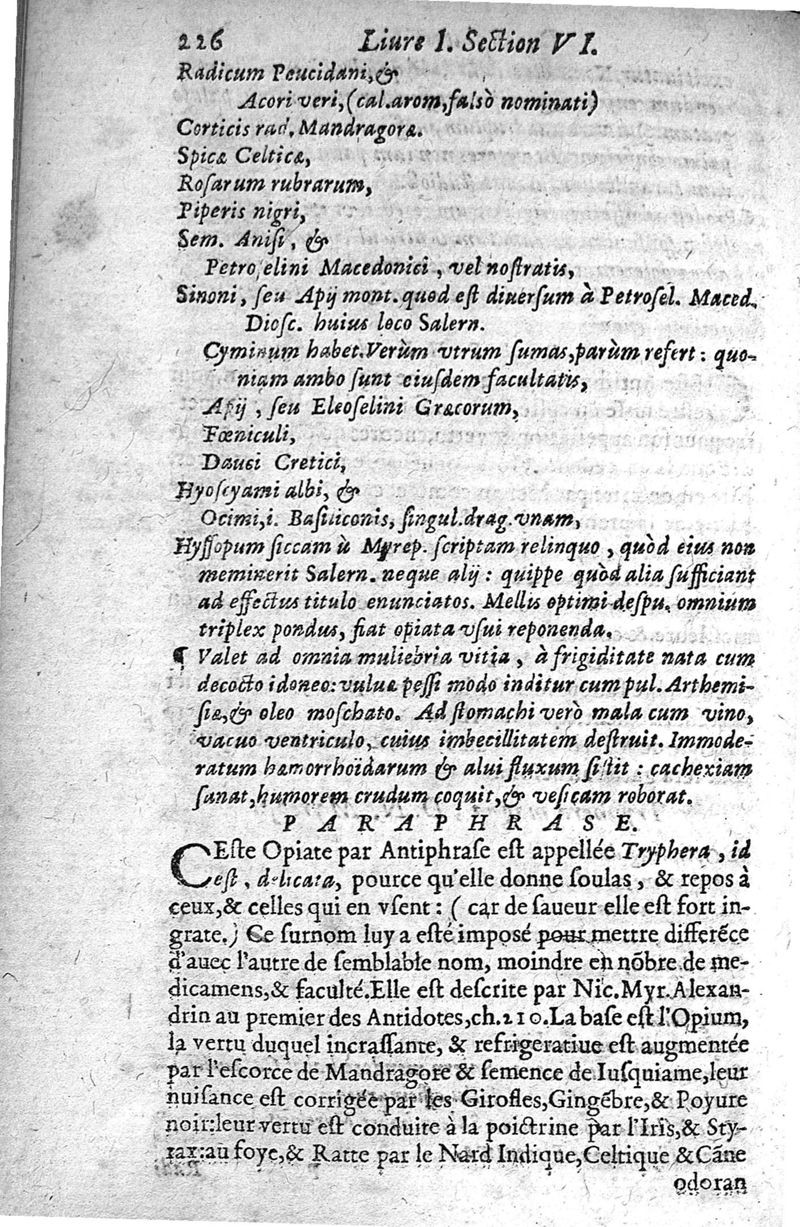 226 Liure I. Section VI.
Radicum Peucidani, &
Acori veri, (cal. arom, falsò nominati)
Corticis rad. Mandragoræ.
Spicæ Celticæ,
Rosarum rubrarum,
Piperis nigri,
Sem. Anisi, &
Petroselini Macedonici, vel nostratis,
Sinoni, seu Apij mont. quod est diuersum à Petrosel. Maced.
Diosc. huius loco Salern.
Cyminum habet. Verùm vtrum sumas, parùm refert: quo-
niam ambo sunt eiusdem facultatis,
Apij, seu Eleoselini Græcorum,
Fœniculi,
Dauci Cretici,
Hyoscyami albi, &
Ocimi, i. Basiliconis, singul. drag. vnam,
Hyssopum siccam ù Myrep. scriptam relinquo, quòd eius non
meminerit Salern. neque alij: quippe quòd alia sufficiant
ad effectus titulo enunciatos. Mellis optimi despu. omnium
triplex pondus, fiat opiata vsui reponenda.
¶ Valet ad omnia muliebria vitia, à frigiditate nata cum
decocto idoneo: vuluæ pessi modo inditur cum pul. Arthemi-
siæ, & oleo moschato. Ad stomachi verò mala cum vino,
vacuo ventriculo, cuius imbecillitatem destruit. Immode-
ratum hæmorrhoïdarum & alui fluxum sistit: cachexiam
sanat, humorem crudum coquit, & vesicam roborat.
PARAPHRASE.
CEste Opiate par Antiphrase est appellée Tryphera, id
est, delicata, pource qu'elle donne soulas, & repos à
ceux, & celles qui en vsent: (car de saueur elle est fort in-
grate.) Ce surnom luy a esté imposé pour mettre differẽce
d'auec l'autre de semblable nom, moindre en nõbre de me-
dicamens, & faculté. Elle est descrite par Nic. Myr. Alexan-
drin au premier des Antidotes, ch. 210. La base est l'Opium,
la vertu duquel incrassante, & refrigeratiue est augmentée
par l'escorce de Mandragore & semence de Iusquiame, leur
nuisance est corrigée par les Girofles, Gingẽbre, & Poyure
noir: leur vertu est conduite à la poictrine par l'Iris, & Sty-
rax: au foye, & Ratte par le Nard Indique, Celtique & Cãne
odoran